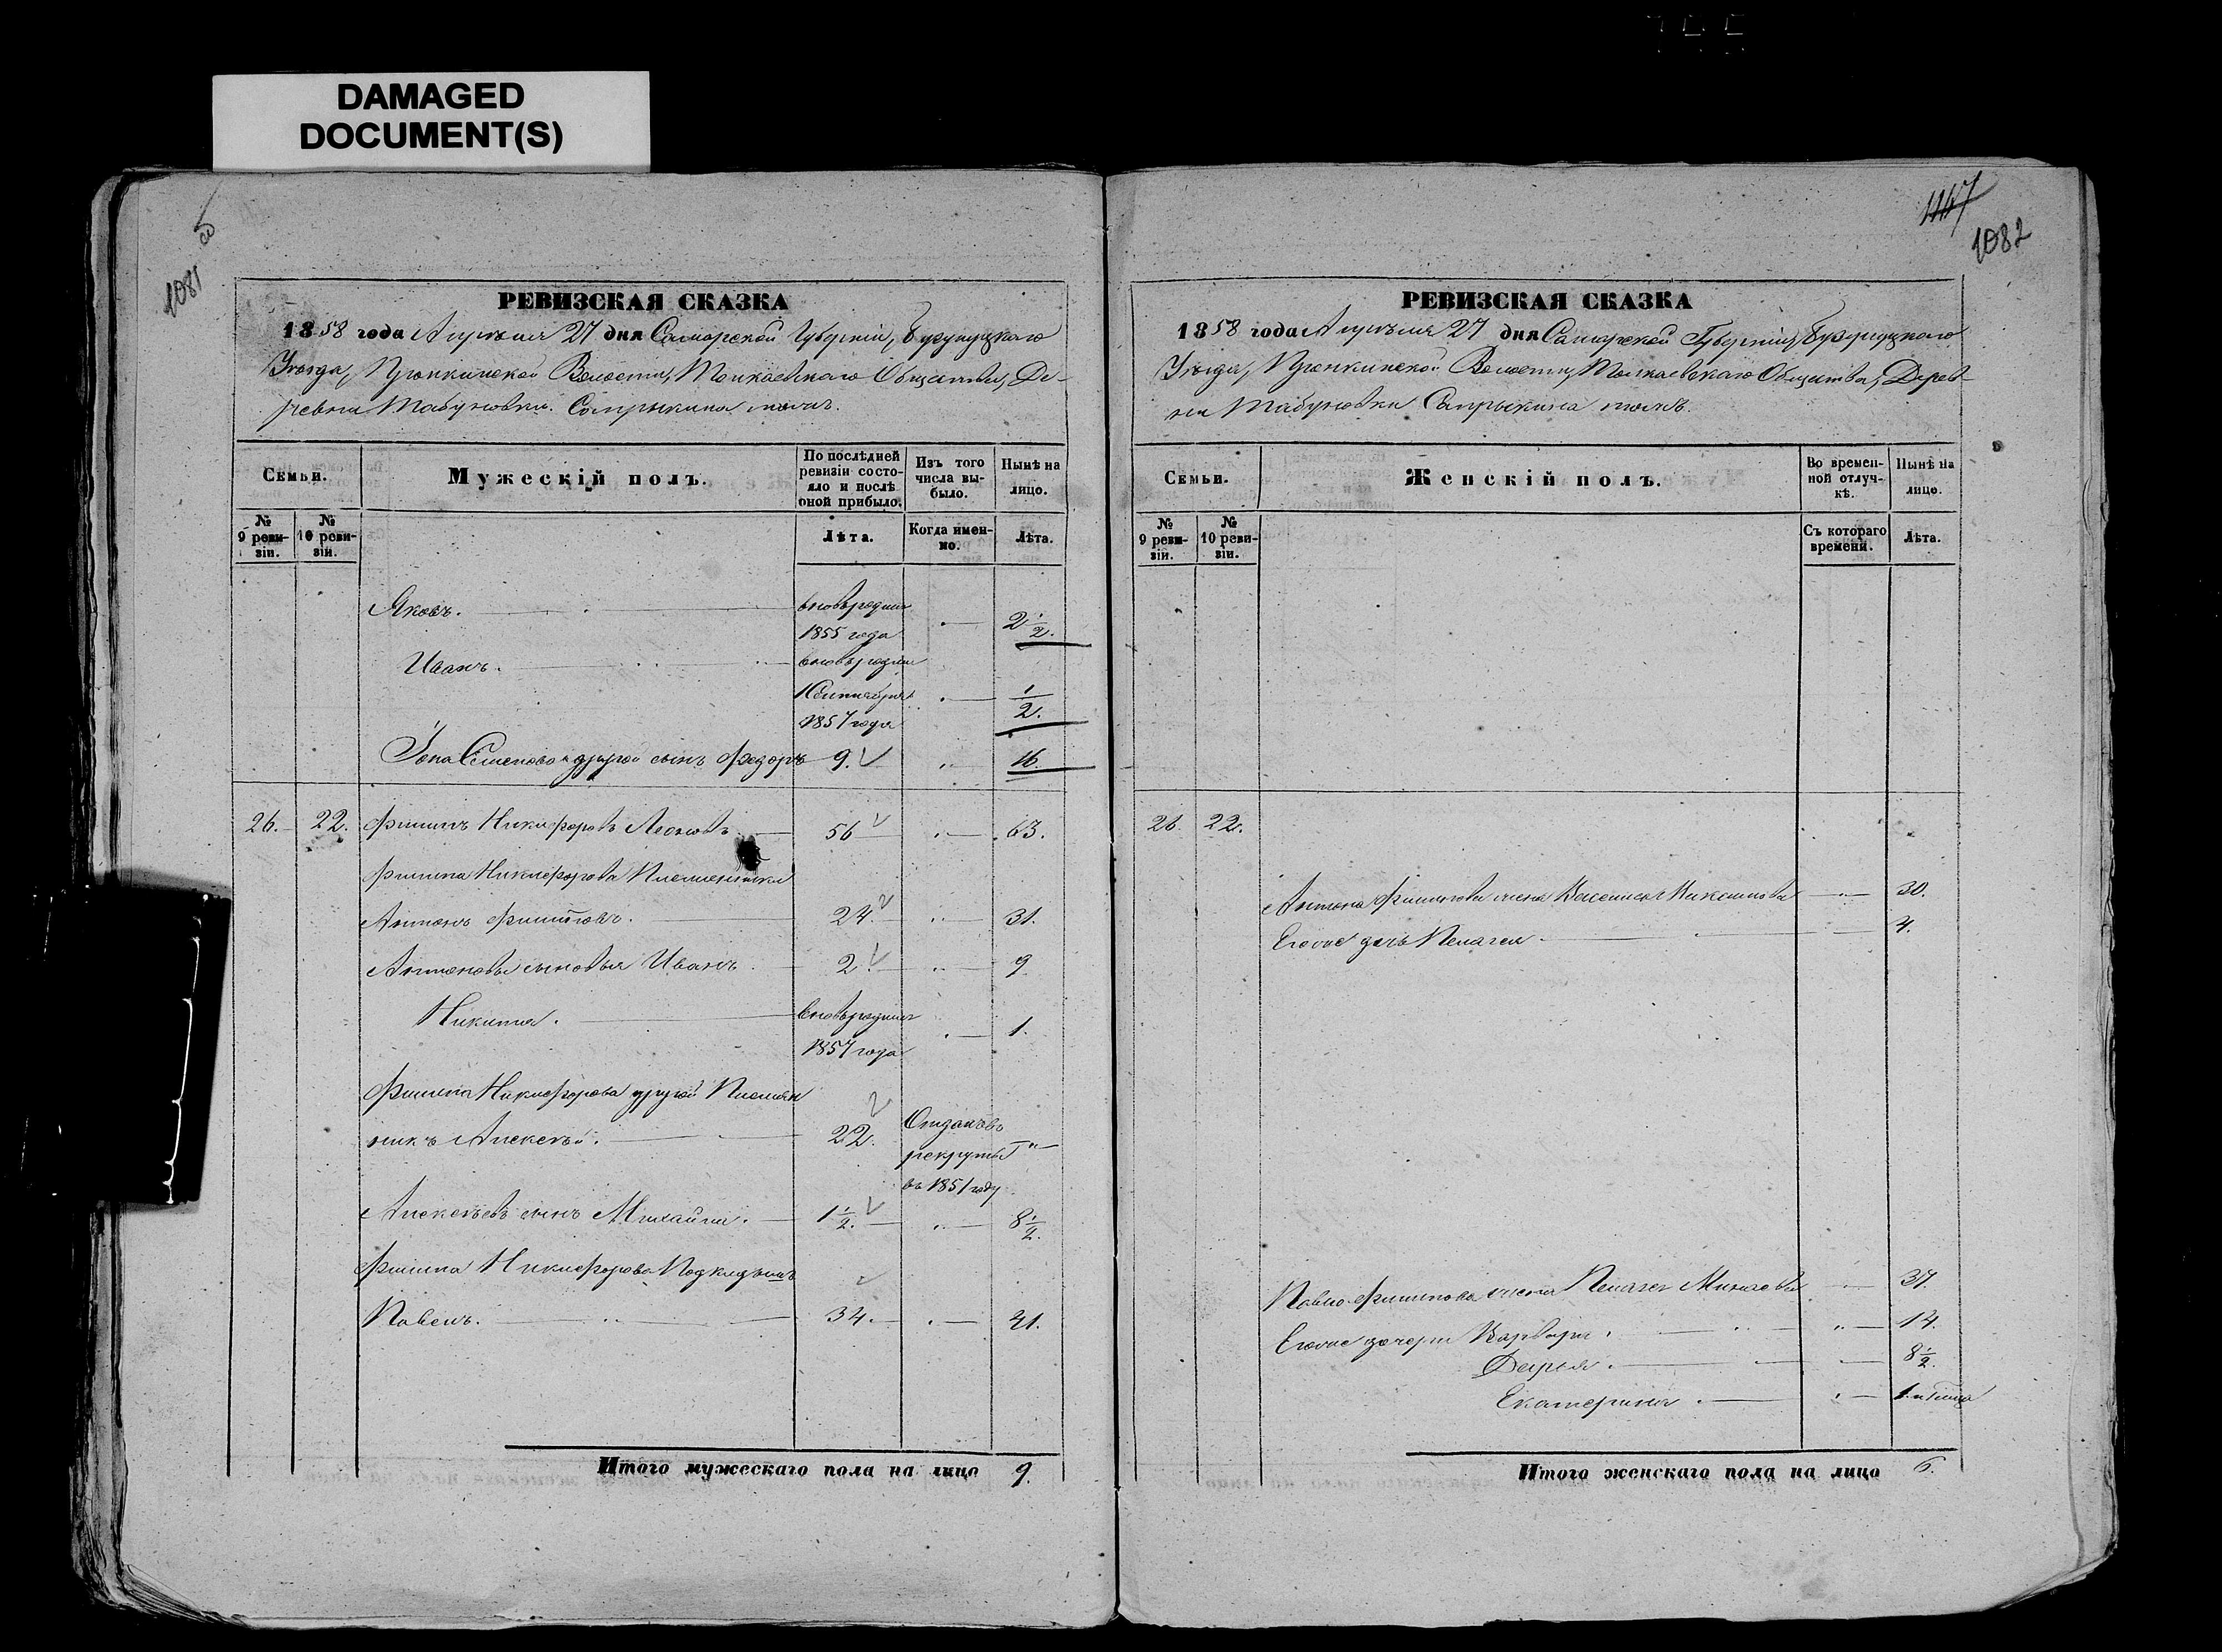 DAMAGED
DOCUMENT(S)
1081
РЕВИЗСКАЯ СКАЗКА
1858 года Апрѣля 27 дня Самарской Губерніи, Бузулуцкаго
Уѣзда, Пронкинской Волости, Толкаевскаго Общества, Де-
ревни Табуновки. Сапрыкина тожъ.
Семьи.
Мужескій полъ.
По послѣдней ревизіи состояло и послѣ оной прибыло.
Изъ того числа выбыло.
Нынѣ на лицо.
№ 9 ревизіи.
№ 10 ревизіи.
Лѣта.
Когда именно.
Лѣта.
Яковъ. вновьрожден
1855 года 2 1/2.
Иванъ. вновьрожден
1857 года 1/2.
Іона Семенова другой сынъ Федоръ 9. 16.
26. 22. Филипъ Никифоровъ 56 63.
Филипа Никифорова Племянники
Антонъ Филиповъ. 24. 31.
Антоновы сыновья Иванъ. 2. 9.
Никита. вновьрожден 1.
1857 года
Филипа Никифорова другой Племян
никъ Алексѣй. 22. Отданъ въ
рекруты
въ 1851 году
Алексѣевъ сынъ Михайла. 1 1/2. 8 1/2.
Филипа Никифорова Подкидышъ
Павелъ. 34. 41.
Итого мужескаго пола на лицо 9.
1147
1082
РЕВИЗСКАЯ СКАЗКА
1858 года Апрѣля 27 дня Самарской Губерніи, Бузулуцкаго
Уѣзда, Пронкинской Волости, Толкаевскаго Общества, Дерев-
ни Табуновки Сапрыкина тожъ.
Семьи.
Женскій полъ.
Во временной отлучкѣ.
Нынѣ на лицо.
№ 9 ревизіи.
№ 10 ревизіи.
Съ котораго времени.
Лѣта.
26. 22.
Антона Филипова жена Василиса Максимова 30.
Егоже дочь Пелагея. 4.
Павла Филипова жена Пелагея Минаева 37.
Егоже дочери Варвара. 14.
Дарья. 8 1/2.
Екатерина.
Итого женскаго пола на лицо 6.